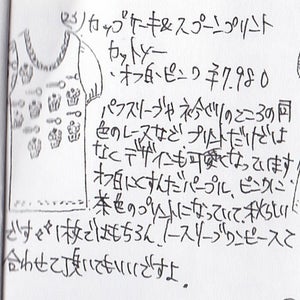 (23) カップケーキ&スプーンプリント
カットソー
・オフ白・ピンク ¥7,980
パフスリーブや衿ぐりのところの同
色のレースなど、プリントだけでは
なくデザインも可愛くなっています!
オフ白にくすんだパープル、ピンクに
茶色のプリントになっていて秋らしい
ですが1枚ではもちろん、ノースリーブワンピースで
合わせて頂いてもいいですよ。